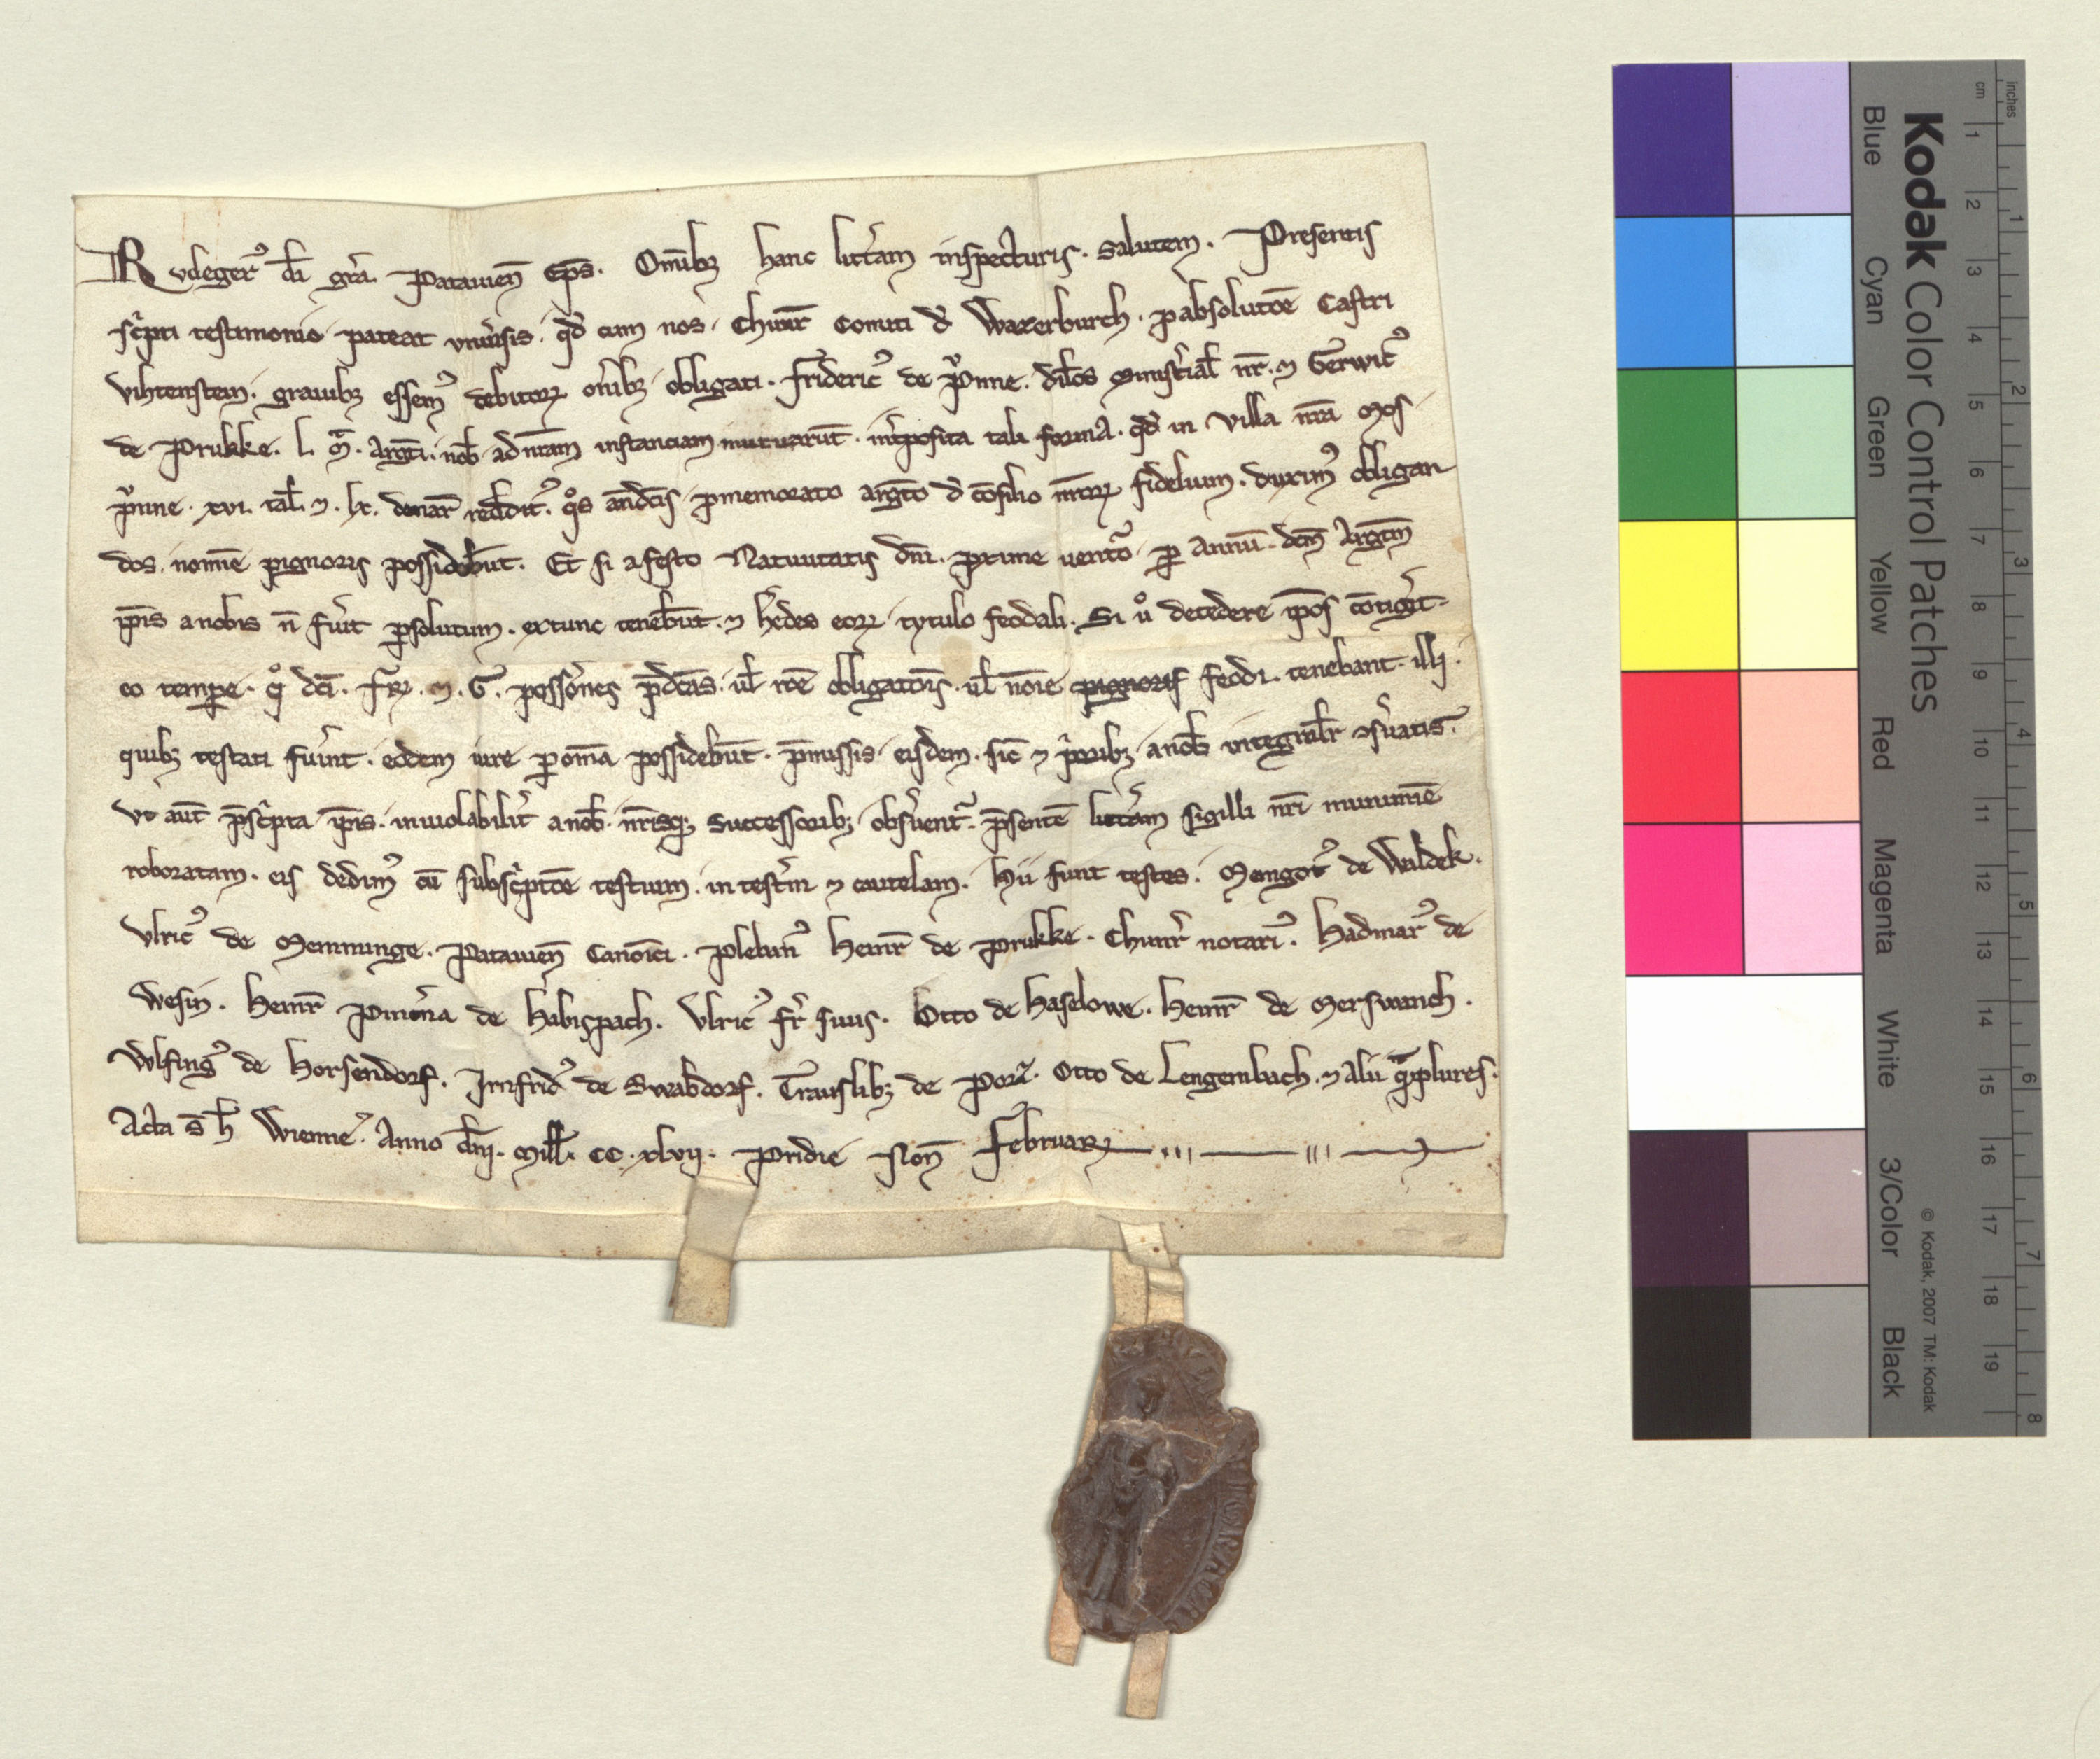 Rvdegerꝰ di̅ gr̅a. Patauien̅ Ep̅s. Om̅ibꝫ hanc litt̅am inspecturis. Salutem. Presentis
sc̅pti testimonio pateat vniu̅sis. qd̅ cum nos. Chunr̅ Comiti d̅ Wazerburch. p absoluto̅e Castri
Vihtenstein. grauibꝫ essemꝰ debitoꝝ on̅ibꝫ obligati. Fridericꝰ de p̅nne. dil̅cs Minist̅ial̅ nr̅. ⁊ Gerwicꝰ
de Prukke. l. m̅. Arge̅ti. nob̅ ad nr̅am instanciam mutuarūt. int̅posita tali forma. qd̅ in Villa nr̅a Mos
p̅nne. xvi. tal̅. ⁊. lx. denar̅ reddit̅. qͦs an̅dc̅is p memorato arge̅to d̅ co̅silio nr̅oꝝ fidelium. duximꝰ obligan
dos. nomi̅e pignoris possidebūt. Et si a festo Natiuitatis dn̅i. proxime uent̅o ꝑ Annū. dc̅m Arge̅tm
ip̅is a nobis n̅ fu̅it ꝑsolutum. extunc tenebūt. ⁊ h̅edes eoꝝ tytulo feodali. Si uͦ decedere ip̅os co̅tig̅it
eo tempe̅. qͦ dc̅i. FR. ⁊. G. possio̅nes p̅dc̅as. ul̅ no̅e obligato̅is. ul̅ no̅ie pignoris feodi. tenebant. illi.
quibꝫ testati fu̅int. eodem iure ꝑ om̅a possidebūt. p̅missis. eisdem. sic̅ ⁊ p̅oribꝫ. a nob̅ integralr̅ ꝯseruatis.
Vt aūt p̅sc̅pta ip̅is. inuiolabilit̅ a nob̅. nr̅isqꝫ Successoribꝫ obs̅uent̅. p̅sente̅ litt̅am sigilli nr̅i munimi̅e
roboratam. eis dedimꝰ cū subsc̅pto̅e testium. in testi̅m ⁊ cautelam. Hii sunt testes. Meingotꝰ de Waldek.
Vlricꝰ de Memminge. Patauien̅ Canoni̅ci. Plebanꝰ Heinr̅ de Prukke. Chunr̅ notariꝰ. Hadmarꝰ de
Wesin. Heinr̅ Pincerna de Habispach. Vlricꝰ fr̅ suus. Otto de Haselowe. Heinr̅ de Merswanch.
Wlfingꝰ de Horsendorf. Irnfridꝰ de Swabdorf. Trauslibꝫ de Porta. Otto de Lengembach. ⁊ Alii q̅mplures.
Acta s̅ h̅ Wienne. Anno dn̅i. Mill̅. CC. xlvij. Pridie Non̅ Februaꝝ
Kodak Color Control Patches
Blue Cyan Green Yellow Red Magenta White 3/Color Black
© Kodak, 2007 TM: Kodak
cm 1 2 3 4 5 6 7 8 9 10 11 12 13 14 15 16 17 18 19
inches 1 2 3 4 5 6 7 8